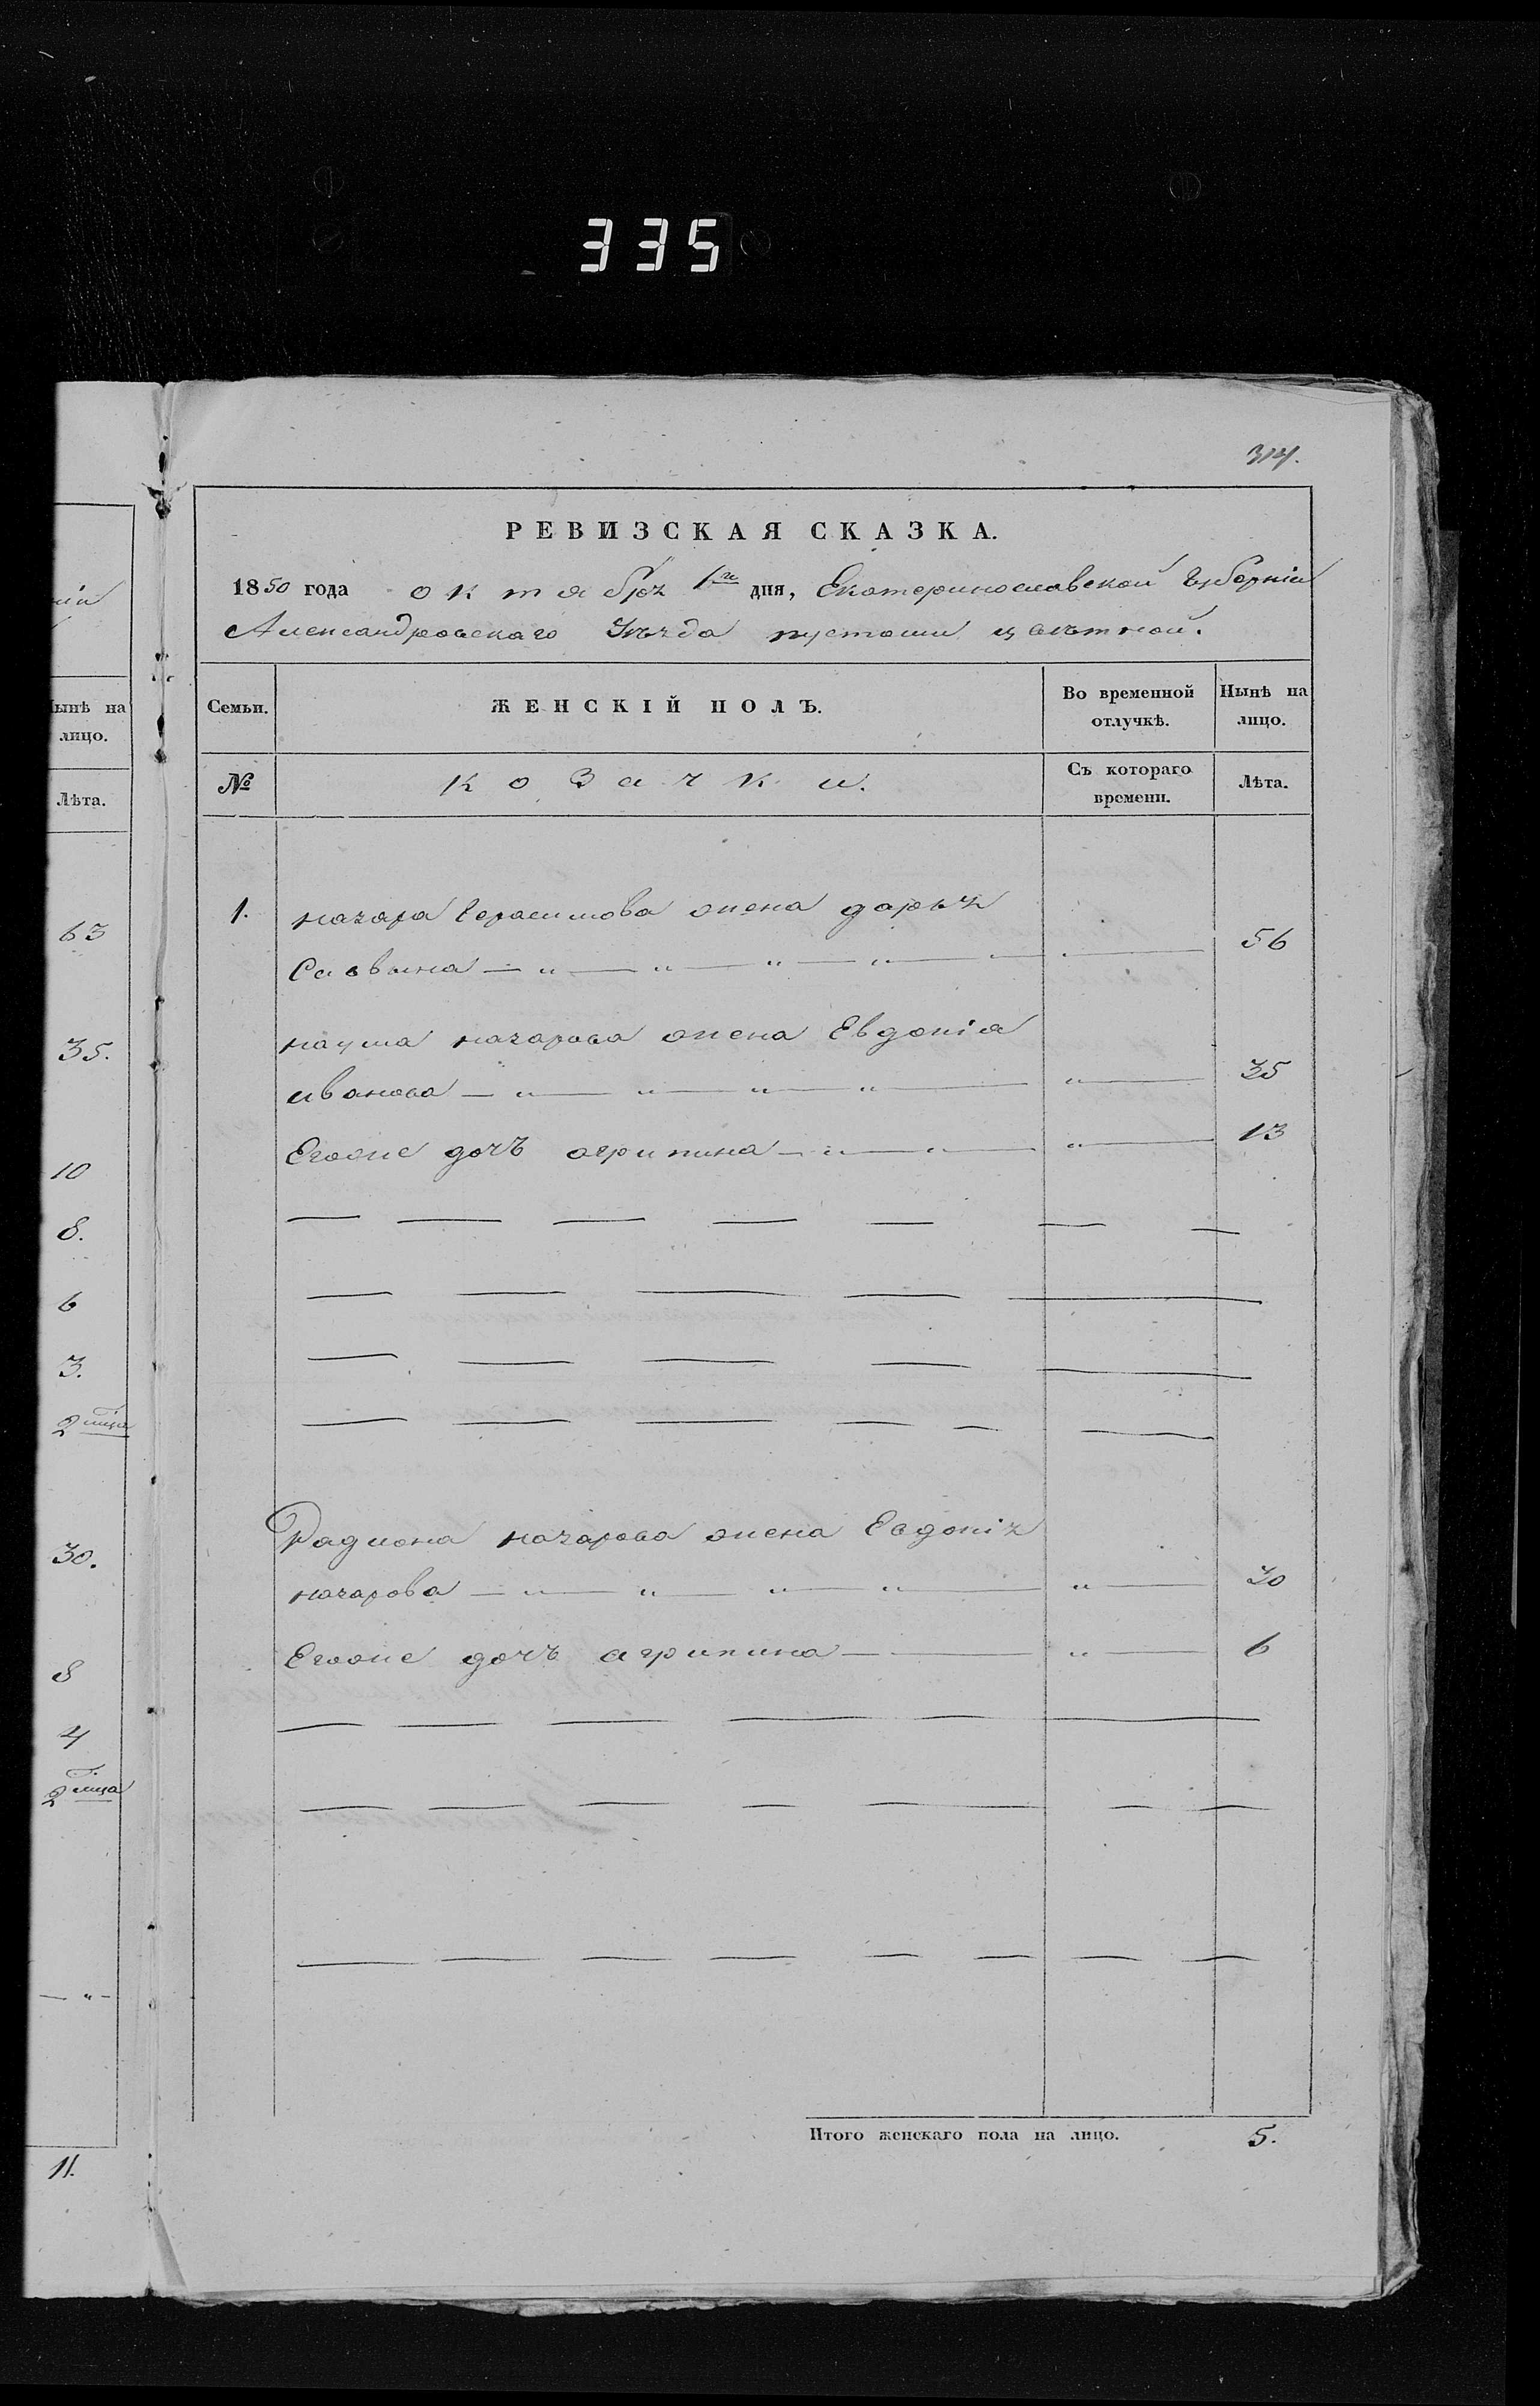 335
314.
РЕВИЗСКАЯ СКАЗКА.
1850 года октября 1го дня, Екатеринославской Губерніи
Александровскаго Уѣзда пустоши цвѣтной.
Семьи.
ЖЕНСКІЙ ПОЛЪ.
Во временной отлучкѣ.
Нынѣ на лицо.
№
козачки.
Съ котораго времени.
Лѣта.
1. назара Герасимова жена дарья
Саввина — " — " — " — " — 56
наума назарова жена Евдокіа
иванова — " — " — " — " — " — 35
Егоже дочъ агрипина — " — " — " — 13
Радиона назарова жена Евдокія
назарова — " — " — " — " — " — 30
Егоже дочъ агрипина — " — 6
Итого женскаго пола на лицо. 5.
ніи
Нынѣ на
лицо.
Лѣта.
63
35.
10
8.
6
3.
2 мца
30.
8
4
2 мца
— " —
11.